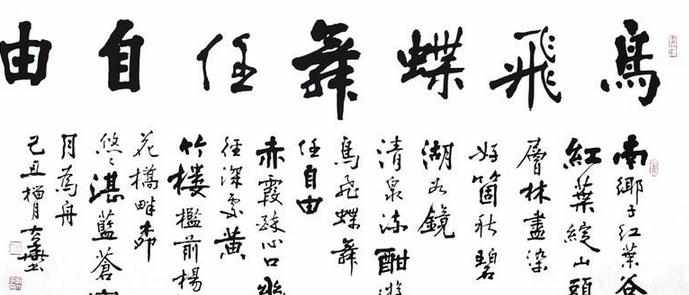 鳥飛蝶舞任自由
南鄉子紅葉谷
紅葉綻山頭
層林盡染
好箇秋碧
湖如鏡
清泉流酣游
鳥飛蝶舞
任自由
赤霞
徑深處黃
竹樓檻前楊
花橋畔柳
悠々湛藍蒼
月為舟
己丑榴月